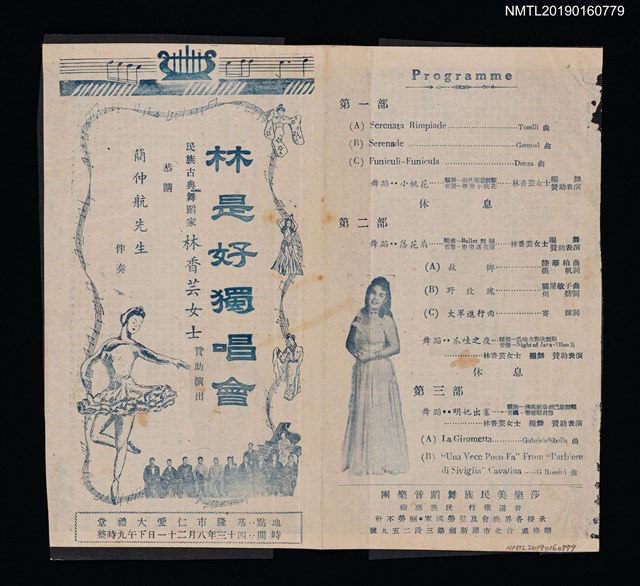 NMTL20190160779
林是好獨唱會
民族古典舞蹈家 林香芸女士 贊助演出
恭請
簡仲航先生 伴奏
地點‥基隆市仁愛大禮堂
時間‥四十三年八月二十一日下午九時整
Programme
第一部
(A) Serenata Rimpiade Toselli 曲
(B) Serenade Gounod 曲
(C) Funiculi-Funicula Denza 曲
舞蹈‥小桃花 林香芸女士 編舞 贊助表演
休息
第二部
舞蹈‥落花扇 林香芸女士 編舞 贊助表演
(A) 故鄉 陸華柏曲 張帆詞
(B) 野玫瑰
(C) 大軍進行曲
舞蹈‥爪哇之夜
林香芸女士 編舞 贊助表演
休息
第三部
舞蹈‥明妃出塞
林香芸女士 編舞 贊助表演
(A) La Girometta Gabriele Sibella 曲
(B) "Una Vece Poco Fa" From "Parbiere
di Siviglia" Cavatina G Rossini 曲
莎樂美民族舞蹈音樂團
NMTL20190160779